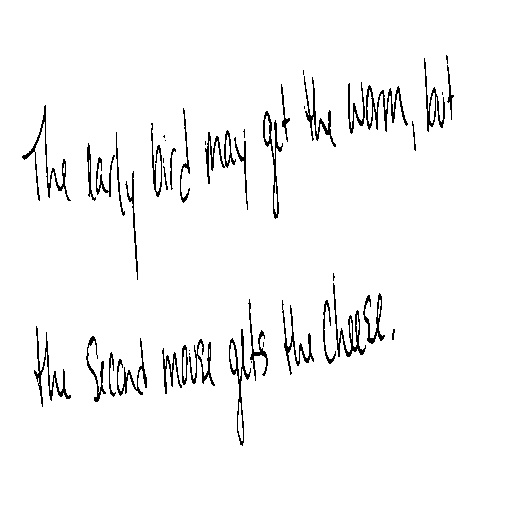 The early bird may get the worm, but
the Second mouse gets the Cheese.